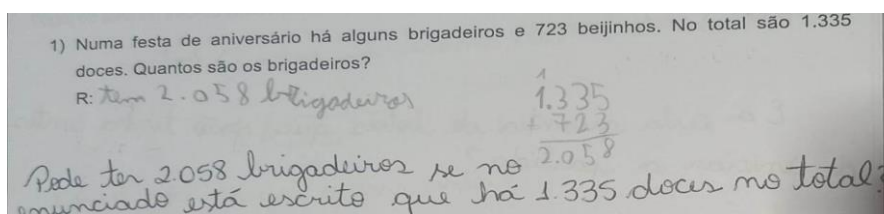 1) Numa festa de aniversário há alguns brigadeiros e 723 beijinhos. No total são 1.335
doces. Quantos são os brigadeiros?
R: tem 2.058 brigadeiros
1
1.335
+ 723
2.058
Pode ter 2.058 brigadeiros se no
enunciado está escrito que há 1.335 doces no total?